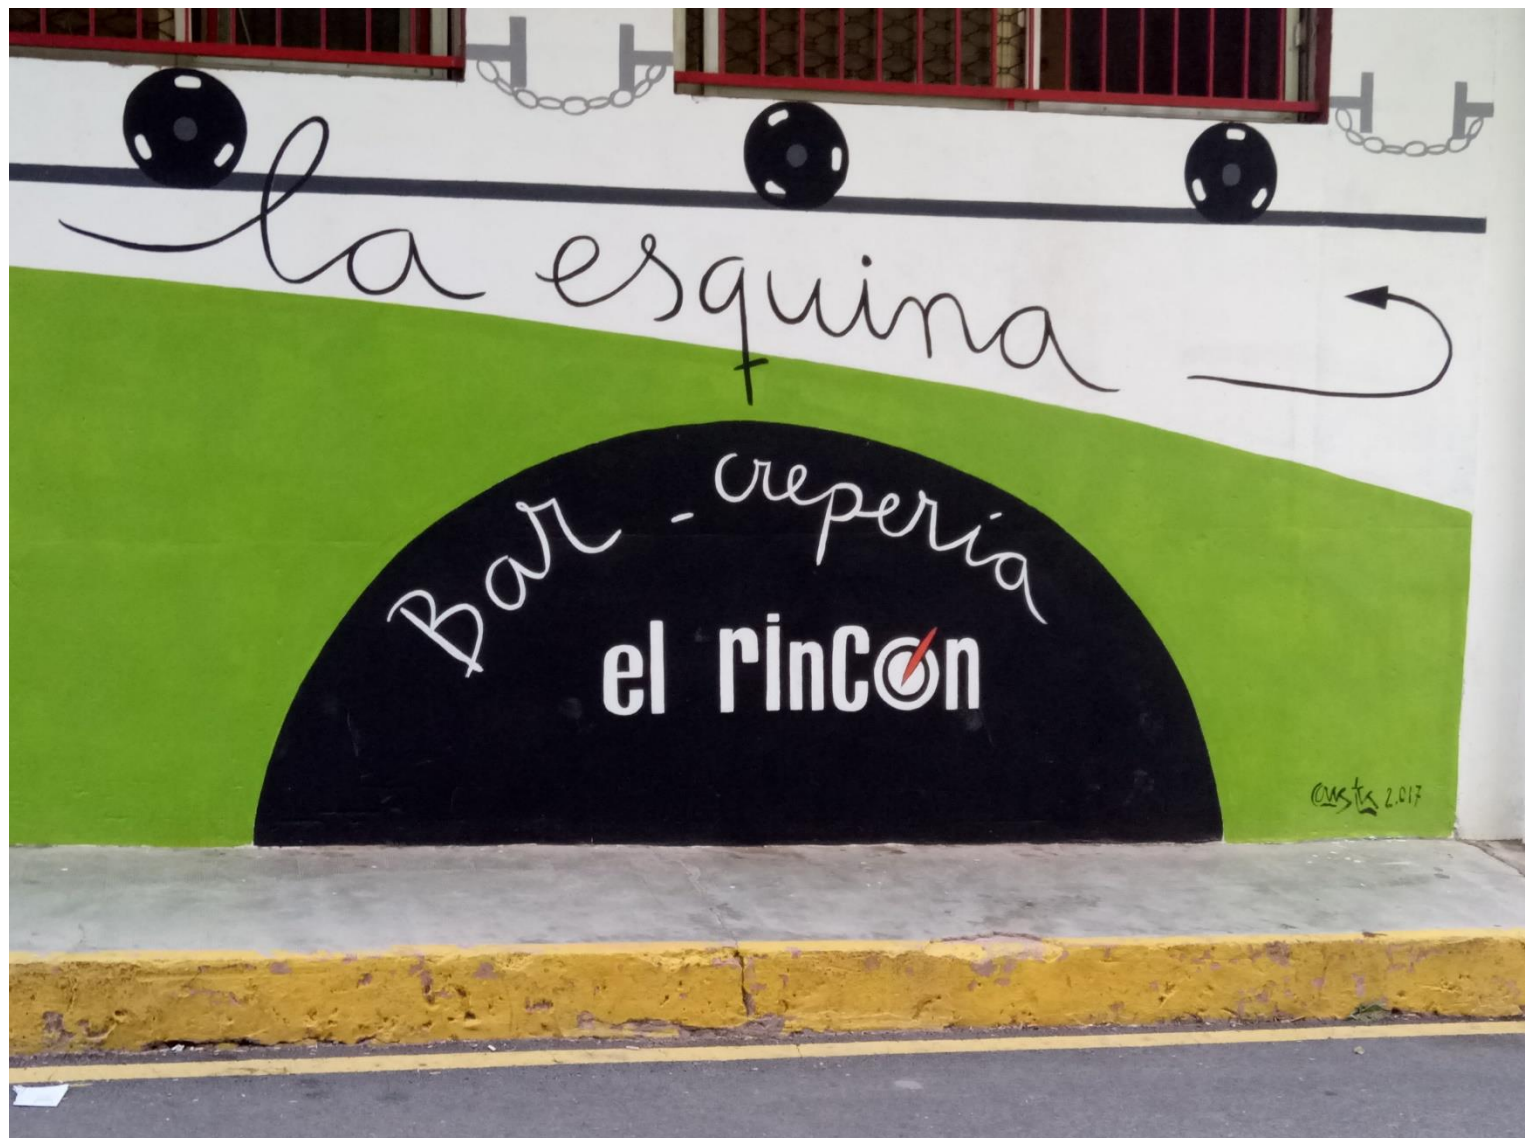 la esquina
Bar - crepería
el rincón
2.017